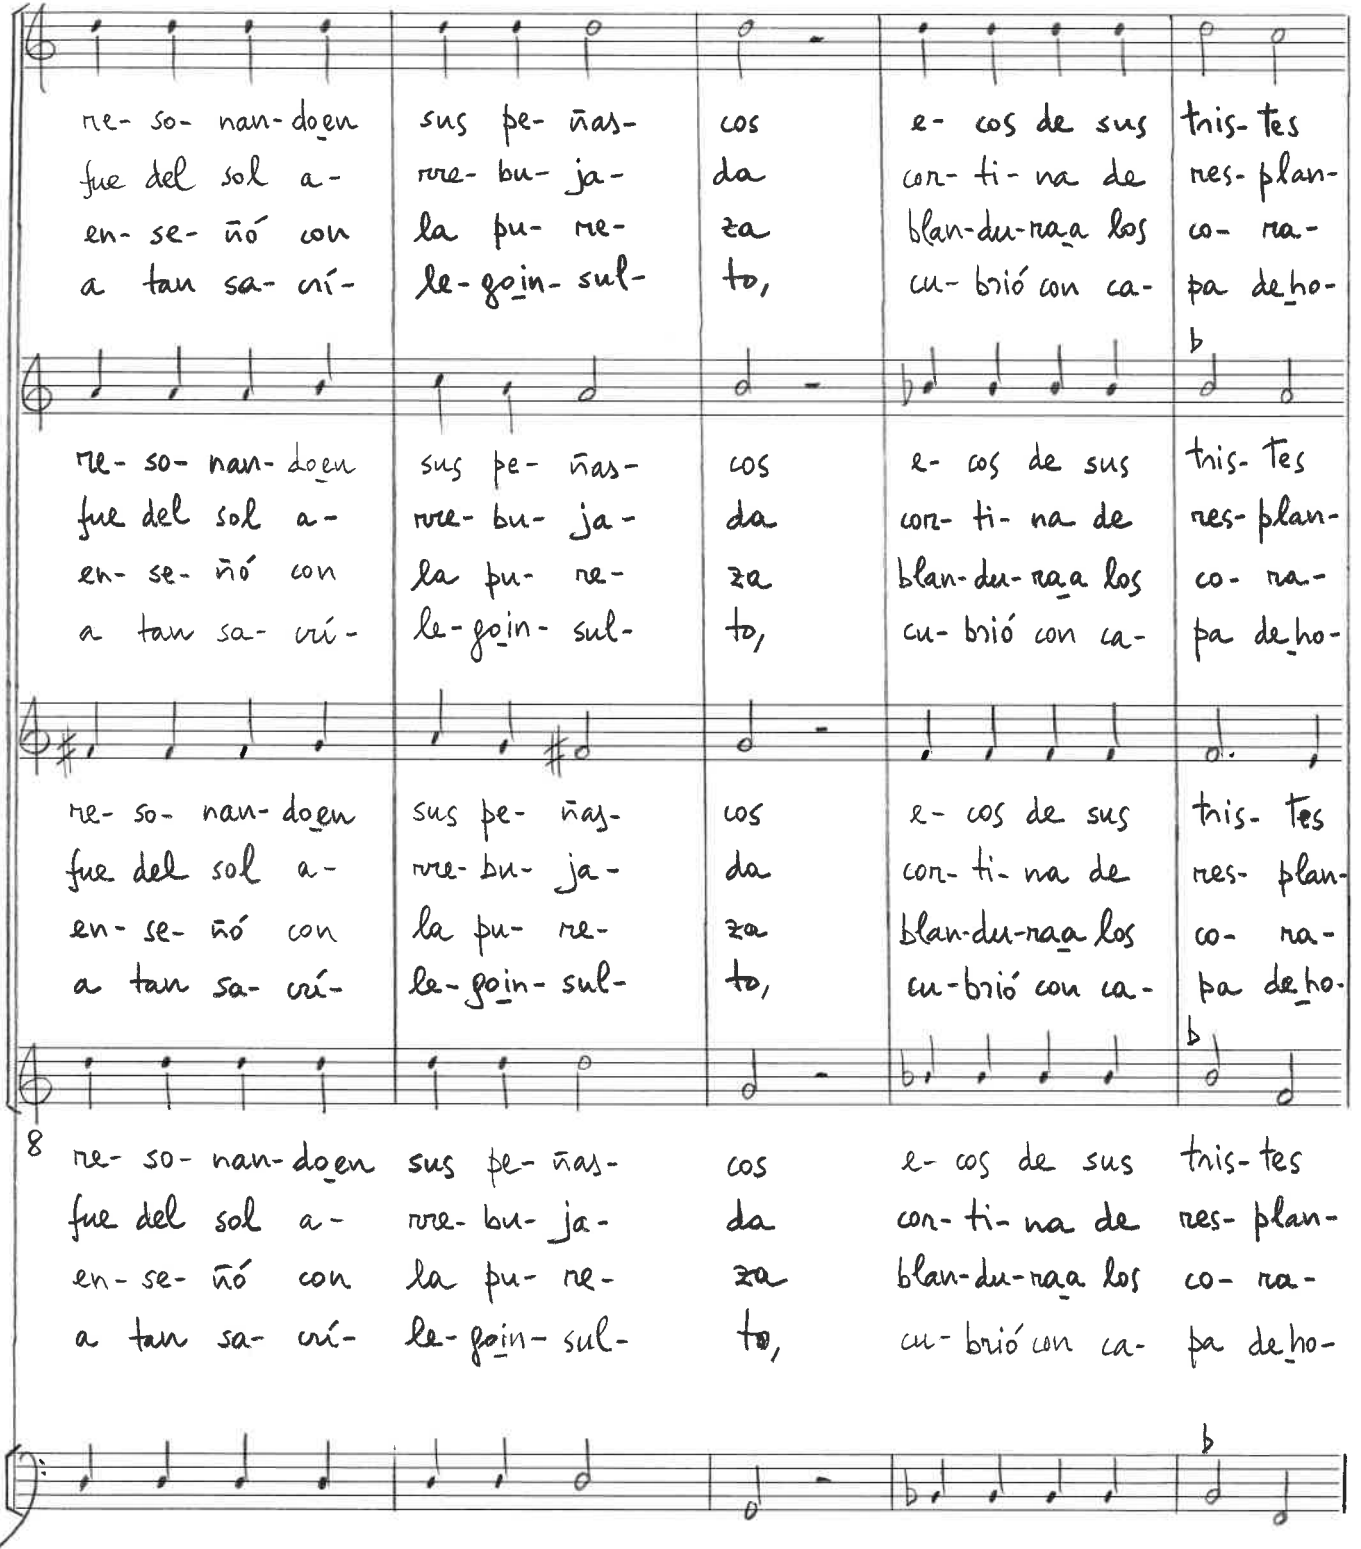 re- so- nan-doen sus pe- ñas- cos e- cos de sus tris- tes
fue del sol a- rre- bu- ja- da cor- ti- na de res- plan-
en- se- ñó con la pu- re- za blan-du-raa los co- ra-
a tan sa- crí- le-goin- sul- to, cu- brió con ca- pa deho-
re- so- nan- doen sus pe- ñas- cos e- cos de sus tris- tes
fue del sol a- rre- bu- ja- da cor- ti- na de res- plan-
en- se- ñó con la pu- re- za blan-du-raa los co- ra-
a tan sa- crí- le-goin- sul- to, cu- brió con ca- pa deho-
re- so- nan-doen sus pe- ñas- cos e- cos de sus tris- tes
fue del sol a- rre- bu- ja- da cor- ti- na de res- plan-
en- se- ñó con la pu- re- za blan-du-raa los co- ra-
a tan sa- crí- le-goin- sul- to, cu-brió con ca- pa deho-
8
re- so- nan-doen sus pe- ñas- cos e- cos de sus tris- tes
fue del sol a- rre- bu- ja- da cor- ti- na de res- plan-
en- se- ñó con la pu- re- za blan-du-raa los co- ra-
a tan sa- crí- le-goin- sul- to, cu- brió con ca- pa deho-